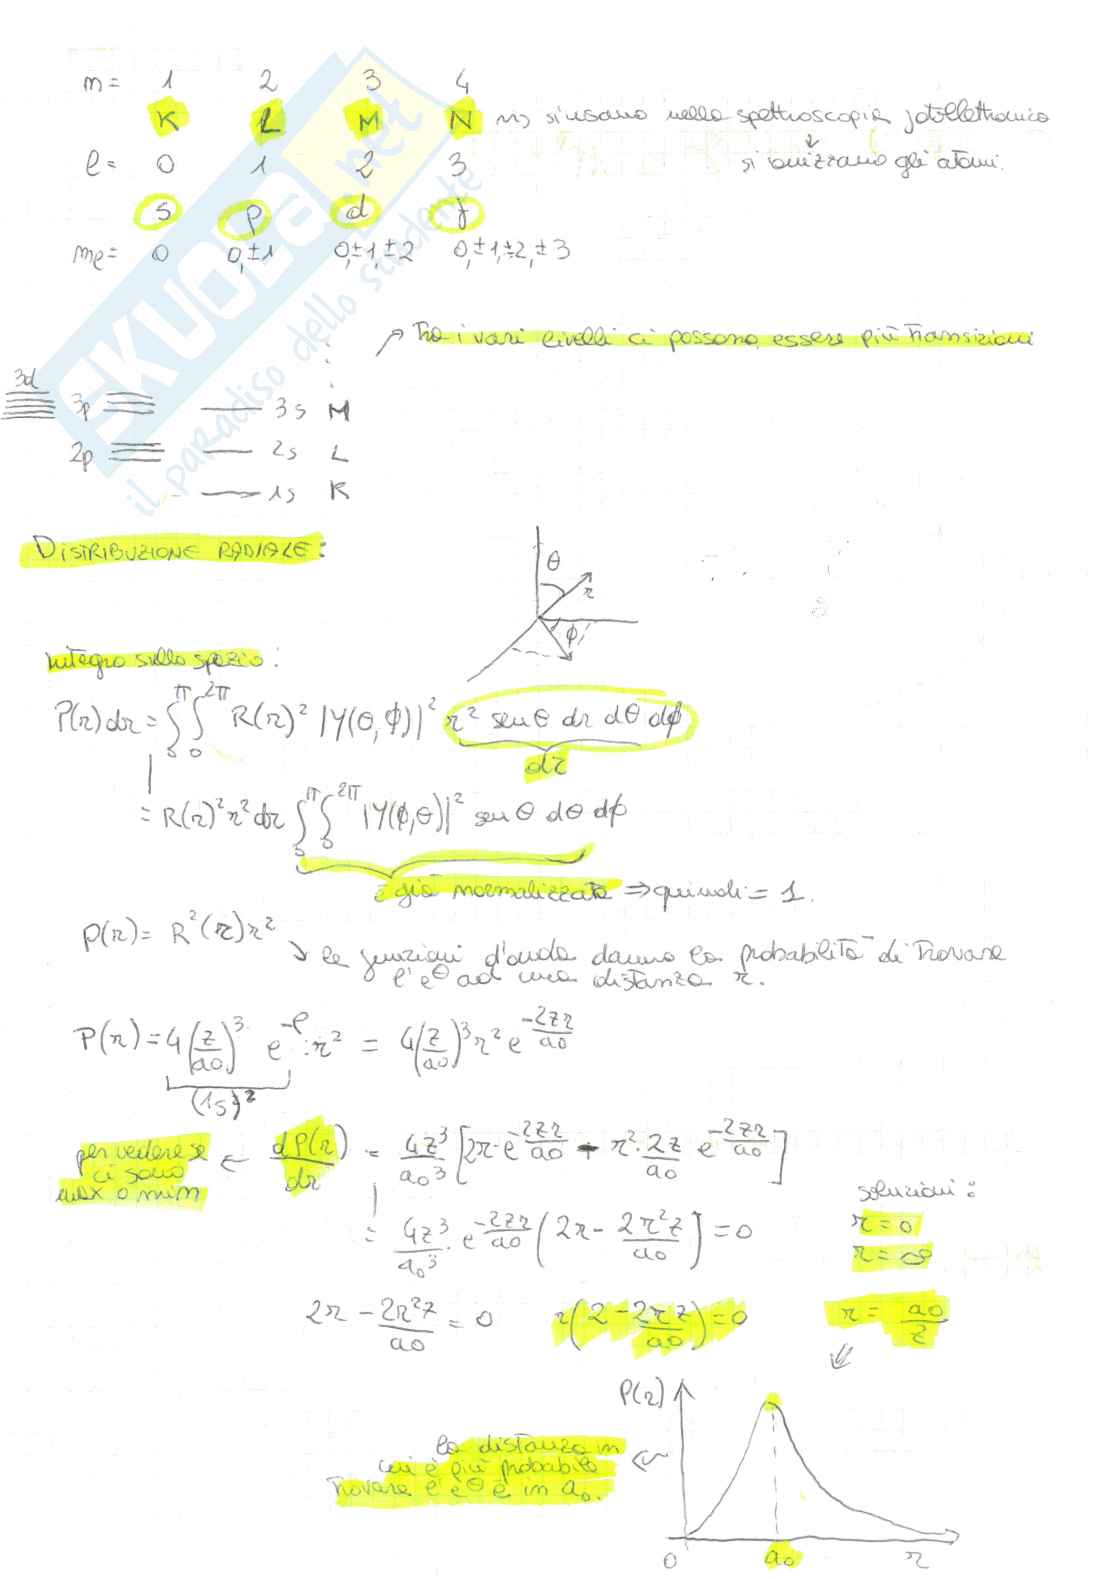 n= 1 2 3 4
K L M N ⇝ si usano nella spettroscopia fotoelettronica
↓
si ionizzano gli atomi.
l= 0 1 2 3
s p d f
ml= 0 0,±1 0,±1,±2 0,±1,±2,±3
↗ Tra i vari livelli ci possono essere più transizioni
3d
3p 3s M
2p 2s L
1s K
SKUOLA.net
il paradiso dello studente
DISTRIBUZIONE RADIALE:
θ
r
ϕ
integro sullo spazio:
P(r)dr = ∫₀^π ∫₀^2π R(r)² |Y(θ,ϕ)|² r² senθ dr dθ dϕ
dτ
= R(r)² r² dr ∫₀^π ∫₀^2π |Y(ϕ,θ)|² senθ dθ dϕ
è già normalizzata ⇒ quindi = 1.
P(r) = R²(r) r²
↘ le funzioni d'onda danno la probabilità di trovare
l'e⊖ ad una distanza r.
P(r) = 4(z/a₀)³ e^-ρ · r² = 4(z/a₀)³ r² e^(-2zr/a₀)
(1s)²
per vedere se
ci sono
max o min
← dP(r)/dr = 4z³/a₀³ [2r·e^(-2zr/a₀) - r²·2z/a₀ e^(-2zr/a₀)]
= 4z³/a₀³ · e^(-2zr/a₀) (2r - 2r²z/a₀] = 0
soluzioni:
r = 0
r = ∞
2r - 2r²z/a₀ = 0 r(2 - 2rz/a₀) = 0 r = a₀/z
P(r)
la distanza in
cui è più probabile
trovare l'e⊖ è in a₀.
0 a₀ r